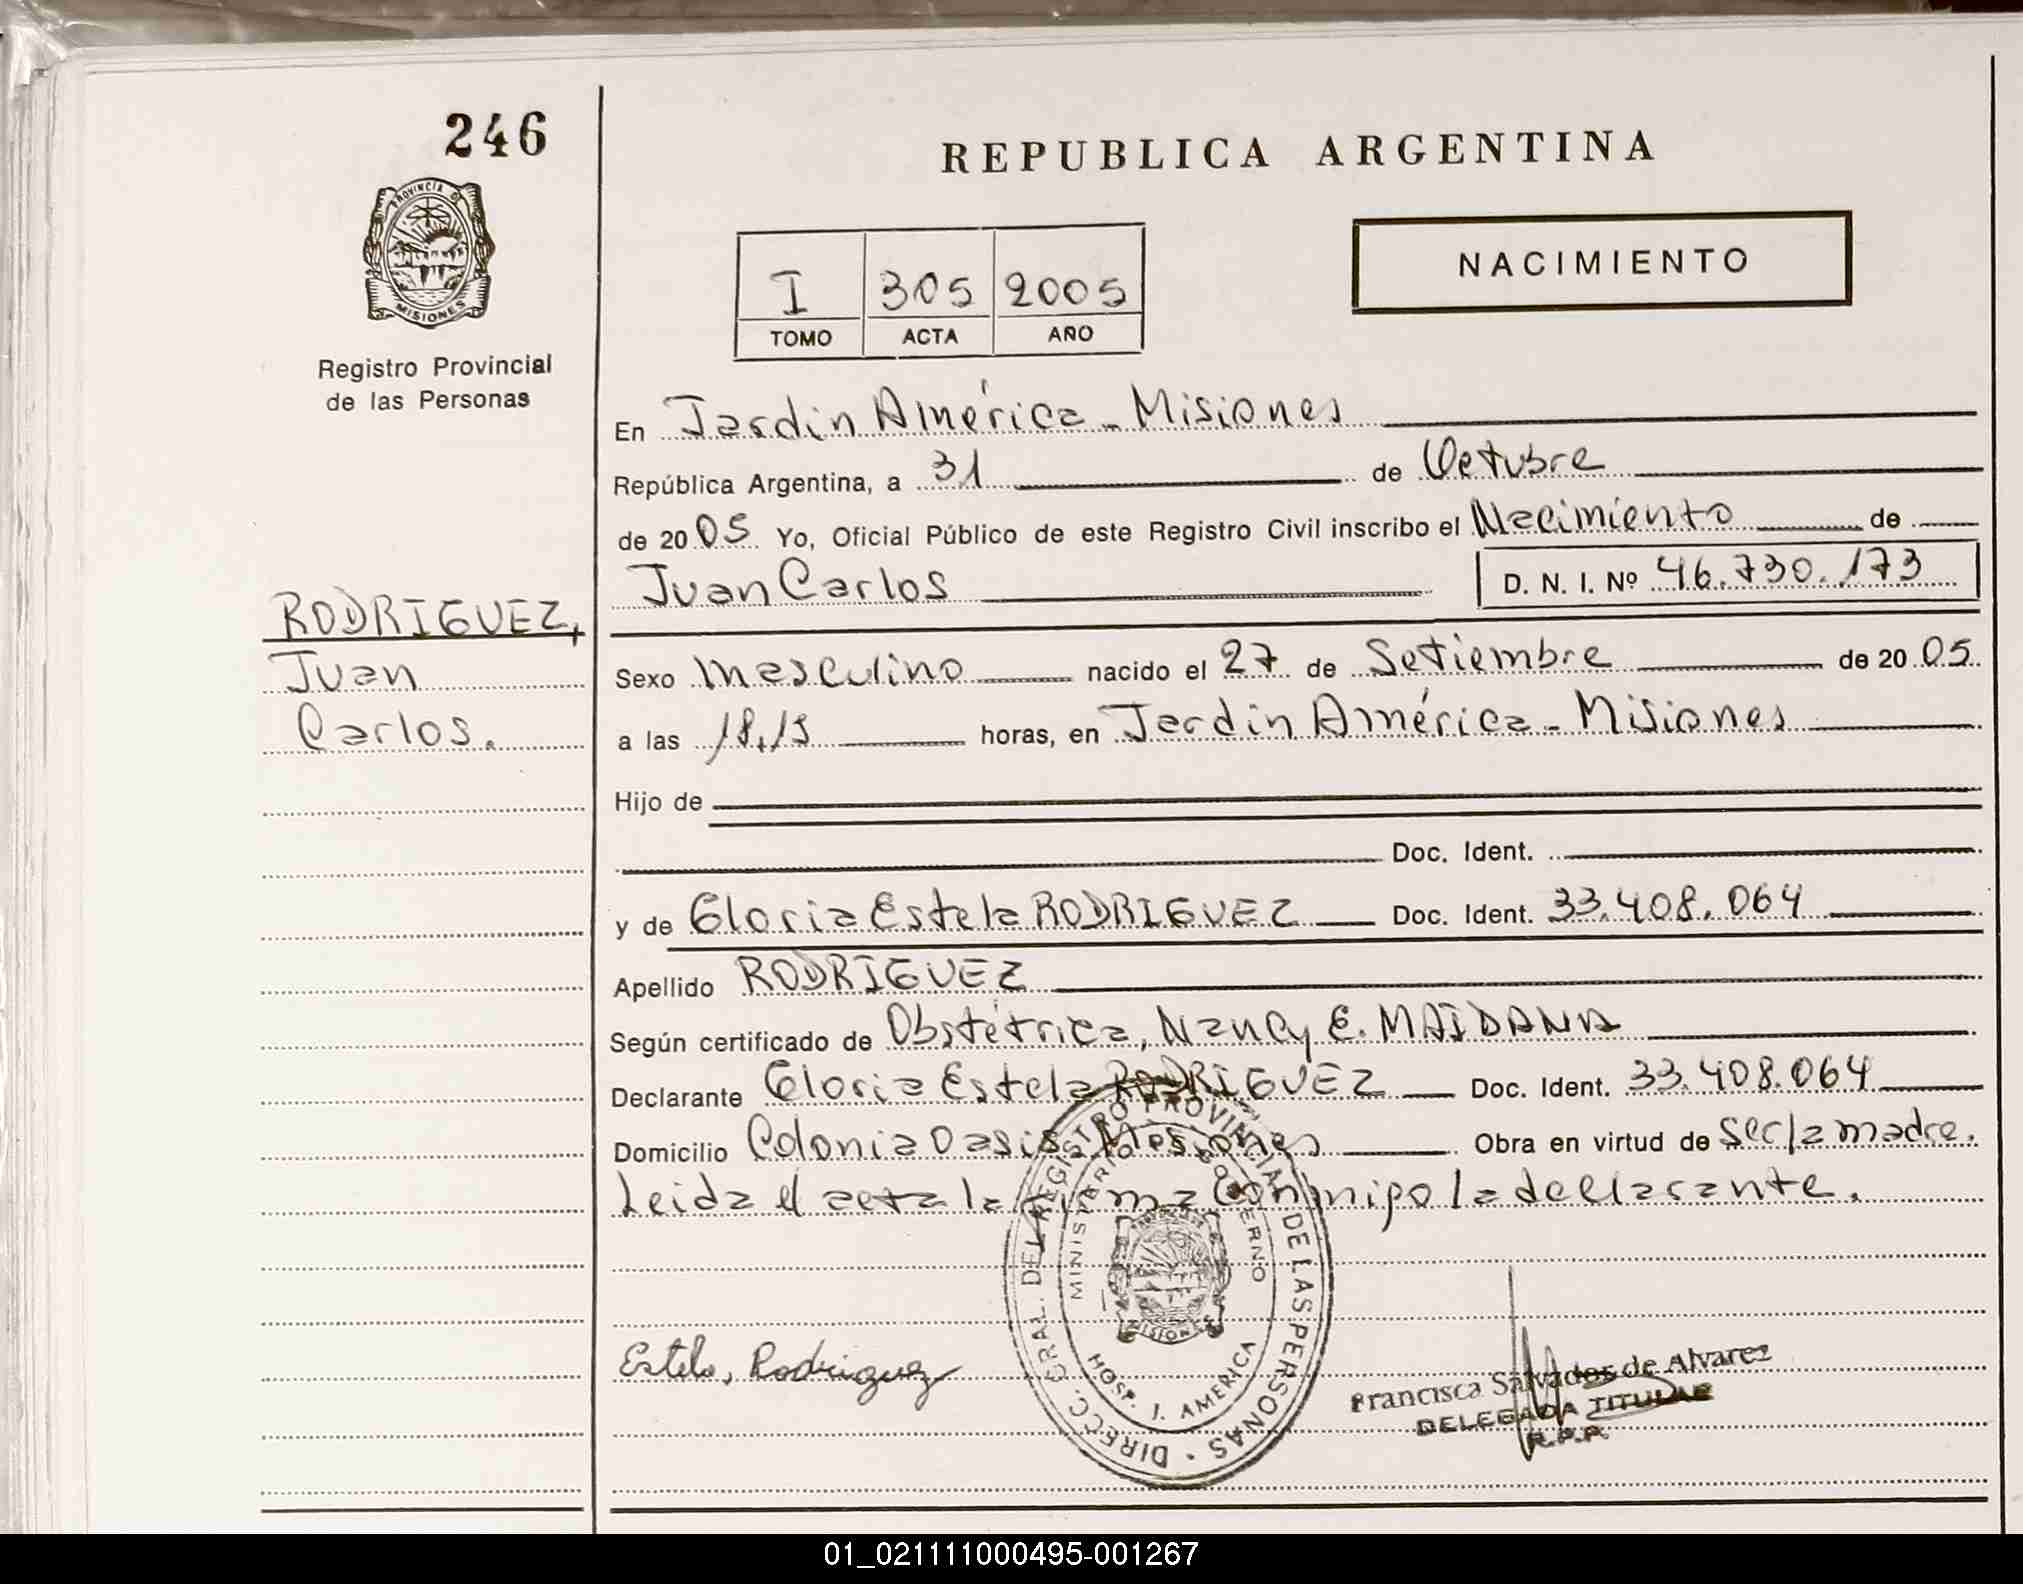 246
PROVINCIA D
MISIONES
Registro Provincial
de las Personas
RODRIGUEZ,
Juan
Carlos.
REPUBLICA ARGENTINA
I 305 2005
TOMO ACTA AÑO
NACIMIENTO
En Jardin América - Misiones
República Argentina, a 31 de Octubre
de 2005 Yo, Oficial Público de este Registro Civil inscribo el Nacimiento de
Juan Carlos D. N. I. Nº 46.730.173
Sexo Masculino nacido el 27 de Setiembre de 2005.
a las 18,15 horas, en Jardin América - Misiones
Hijo de
Doc. Ident.
y de Gloria Estela RODRIGUEZ Doc. Ident. 33.408.064
Apellido RODRIGUEZ
Según certificado de Obstétrica, Nancy E. MAIDANA
Declarante Gloria Estela RODRIGUEZ Doc. Ident. 33.408.064
Domicilio Colonia Oasis Misiones Obra en virtud de ser la madre.
Leida el acta la firma conmigo la declarante.
DIRECC. GRAL. DEL REGISTRO PROVINCIAL DE LAS PERSONAS
MINISTERIO GOBIERNO
MISIONES
HOSP. J. AMERICA
Estela, Rodriguez
Francisca Salvador de Alvarez
DELEGADA TITULAR
R.P.P.
01_021111000495-001267